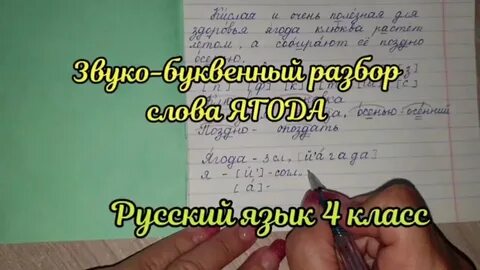 Кислая и очень полезная для
здоровья ягода клюква растет
летом, а собирают её поздно
осенью.
Звуко-буквенный разбор
слова ЯГОДА
осенью-осенний
Поздно - опоздать
Ягода - 3 сл, [й'а́гада]
я - [й'] - согл.,
[а́] -
Русский язык 4 класс